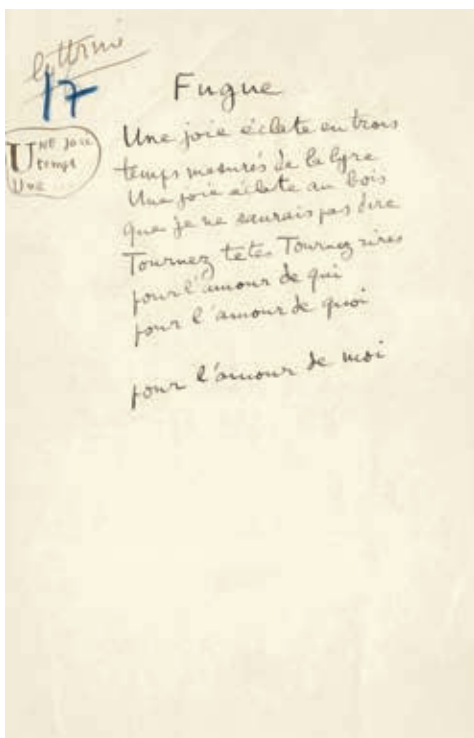 lettrine
17
Fugue
UNE joie
temps
Une
Une joie éclate en trois
temps mesurés de la lyre
Une joie éclate au bois
que je ne saurais pas dire
Tournez têtes Tournez rires
pour l'amour de qui
pour l'amour de quoi
pour l'amour de moi